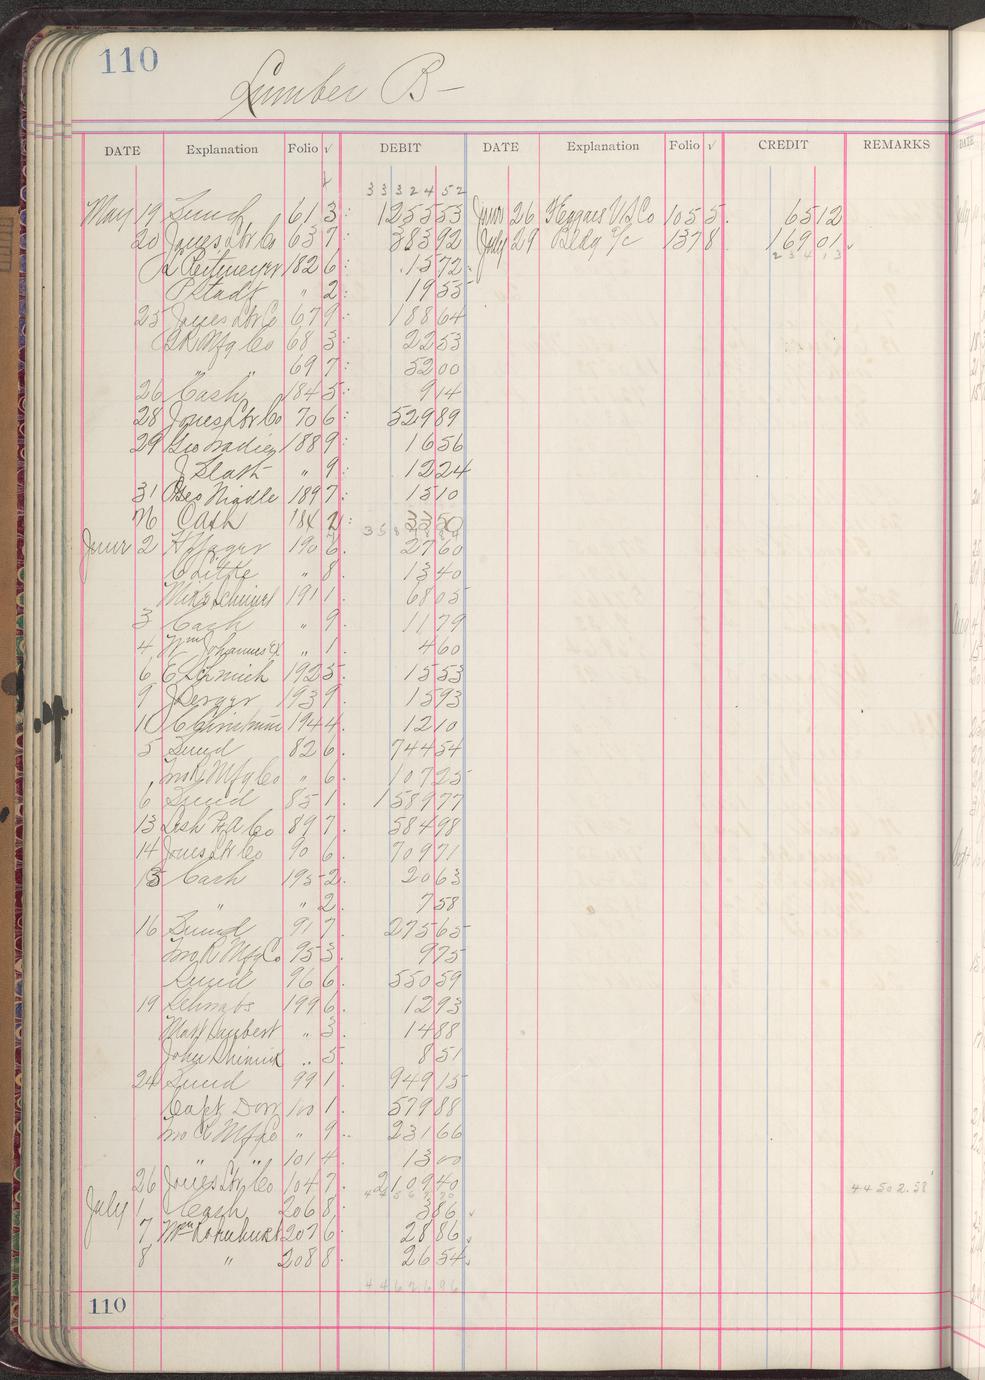 110
Lumber B-
DATE Explanation Folio √ DEBIT DATE Explanation Folio √ CREDIT REMARKS
3 3 3 2 4 5 2
May 19 Sund 61 3 1255 53 June 26 Co 105 5 65 12
20 Jones Lbr Co 63 7 383 92 July 29 Bldg a/c 137 8 169 01
2 3 4 1 3
L Reitmeyer 182 6 15 72
P Stadt " 2 19 55
25 Jones Lbr Co 67 9 188 64
Mfg Co 68 3 22 53
" 69 7 52 00
26 Cash 184 5 9 14
28 Jones Lbr Co 70 6 529 89
29 Geo 188 9 16 56
J " 9 12 24
31 Geo 189 7 15 10
26 Cash 184 2 33 50
June 2 H Jager 190 6 27 60
C Litke " 8 13 40
Mike 191 1 68 05
3 Cash " 9 11 79
4 Wm Johannes " 1 4 60
6 E Schmidt 192 5 15 53
9 J Berger 193 9 15 93
10 C 194 4 12 10
5 Sund 82 6 744 54
Jno R Mfg Co " 6 107 25
6 Sund 85 1 1589 77
13 Co 89 7 584 98
14 Jones Lbr Co 90 6 709 71
15 Cash 195 2 20 63
" " 2 7 58
16 Sund 91 7 275 65
Jno R Mfg Co 95 3 9 75
Sund 96 6 550 59
19 Schnabs 199 6 12 93
Matt Laubert " 3 14 88
John " 5 8 51
24 Sund 99 1 949 15
Capt Dorr 100 1 579 88
Jno R Mfg Co " 9 231 66
" " 101 4 13 00
26 Jones Lbr Co 104 7 2109 40 44502.58
July 1 Cash 206 8 3 86
7 Wm 207 6 28 86
8 " 208 8 26 54
4 4 6 2 6 9 6
110